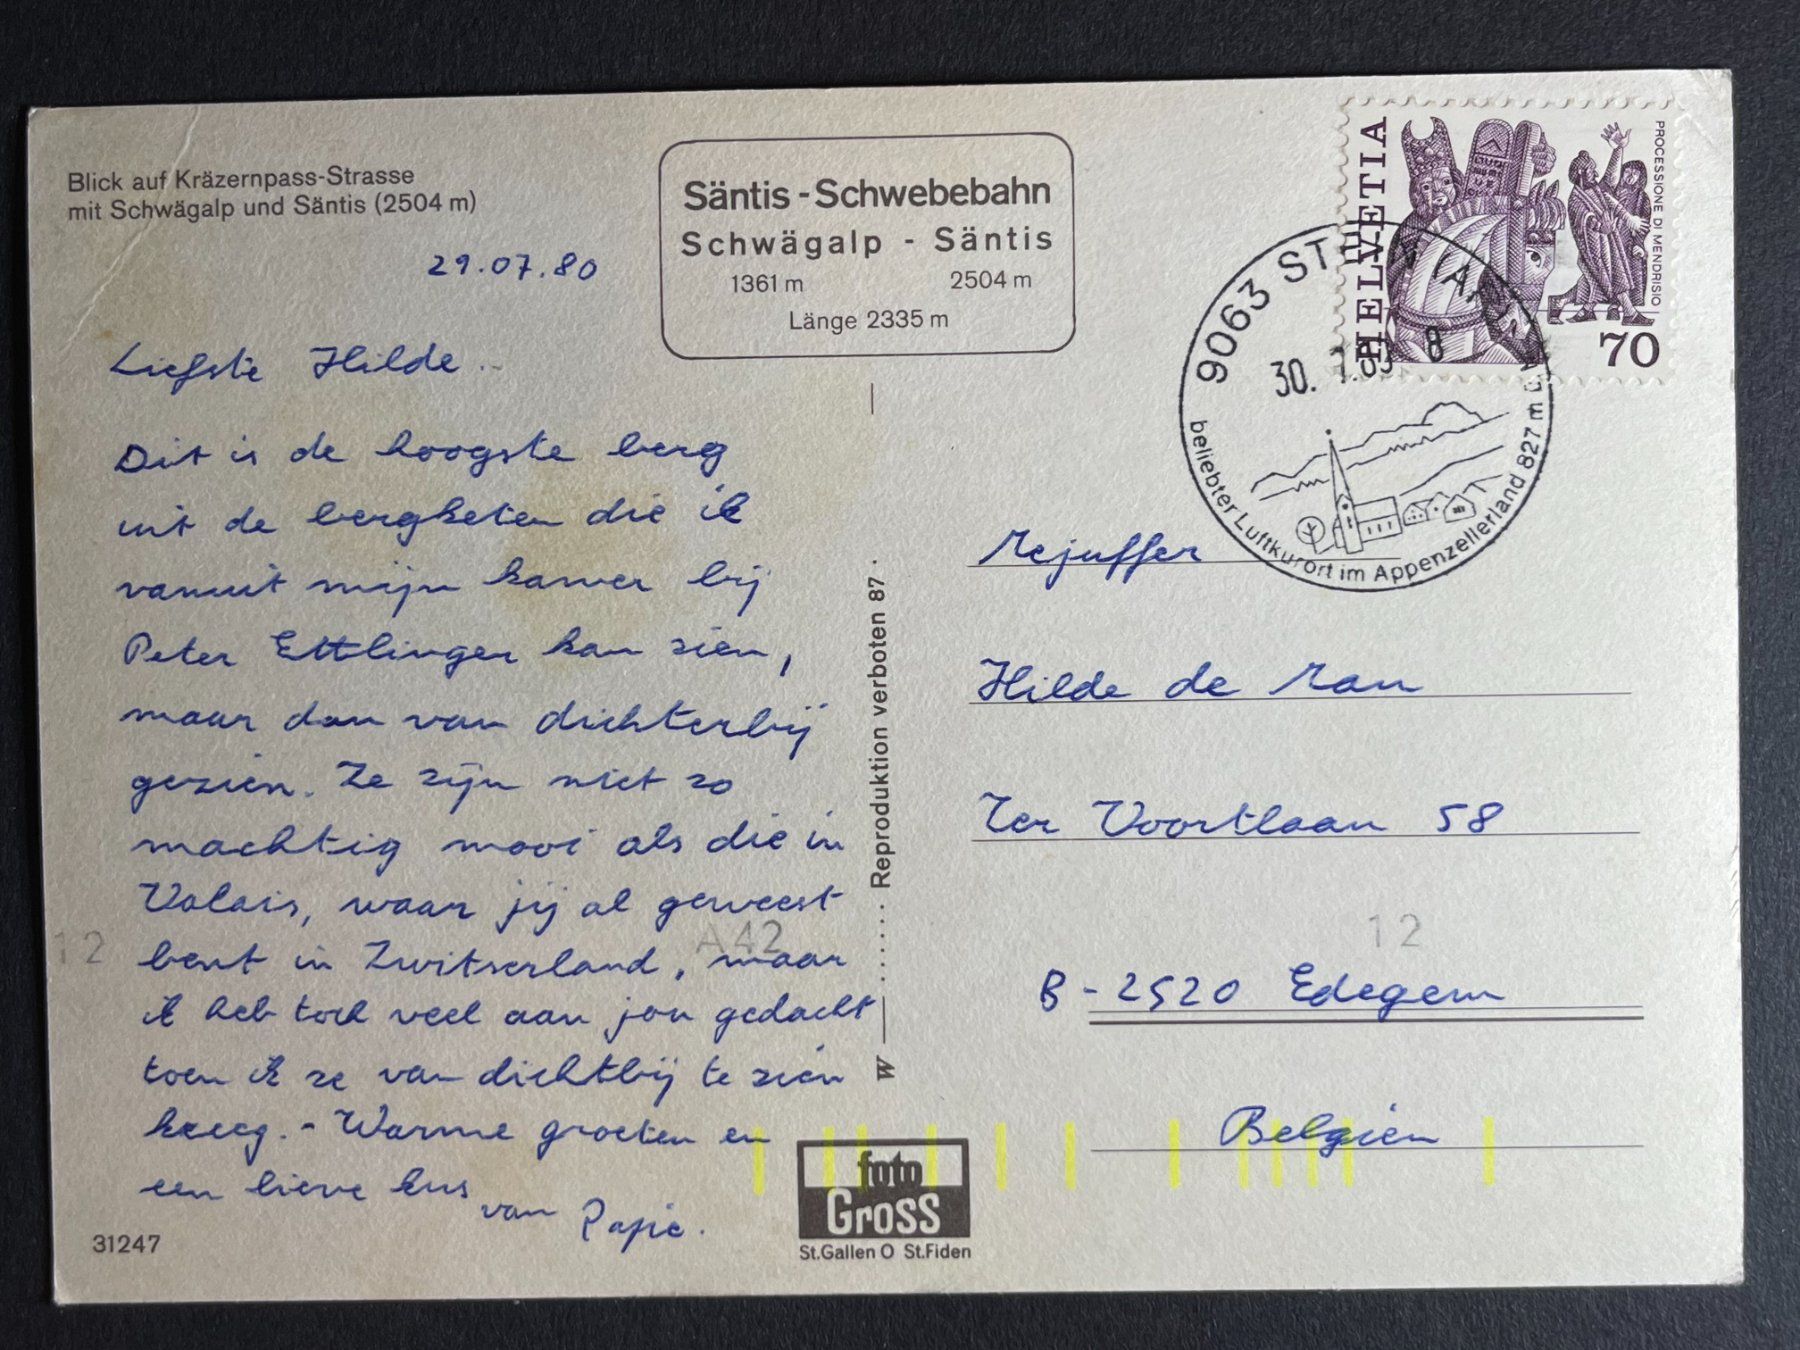 Blick auf Kräzernpass-Strasse
mit Schwägalp und Säntis (2504 m)
29.07.80
Säntis-Schwebebahn
Schwägalp - Säntis
1361 m 2504 m
Länge 2335 m
Liefste Hilde.
Dit is de hoogste berg
uit de bergketen die ik
vanuit mijn kamer bij
Peter Ettlinger kan zien,
maar dan van dichterbij
gezien. Ze zijn niet zo
machtig mooi als die in
Valais, waar jij al geweest
bent in Zwitserland, maar
ik heb toch veel aan jou gedacht
toen ik ze van dichtbij te zien
kreeg. - Warme groeten en
een lieve kus
van Papie.
31247
12
A42
W
Reproduktion verboten 87
foto
Gross
St.Gallen O St.Fiden
HELVETIA
PROCESSIONE DI MENDRISIO
70
9063 ST
30. 8
beliebter Luftkurort im Appenzellerland 827 m
Mejuffer
Hilde de Man
Ter Voortlaan 58
12
B-2520 Edegem
Belgien